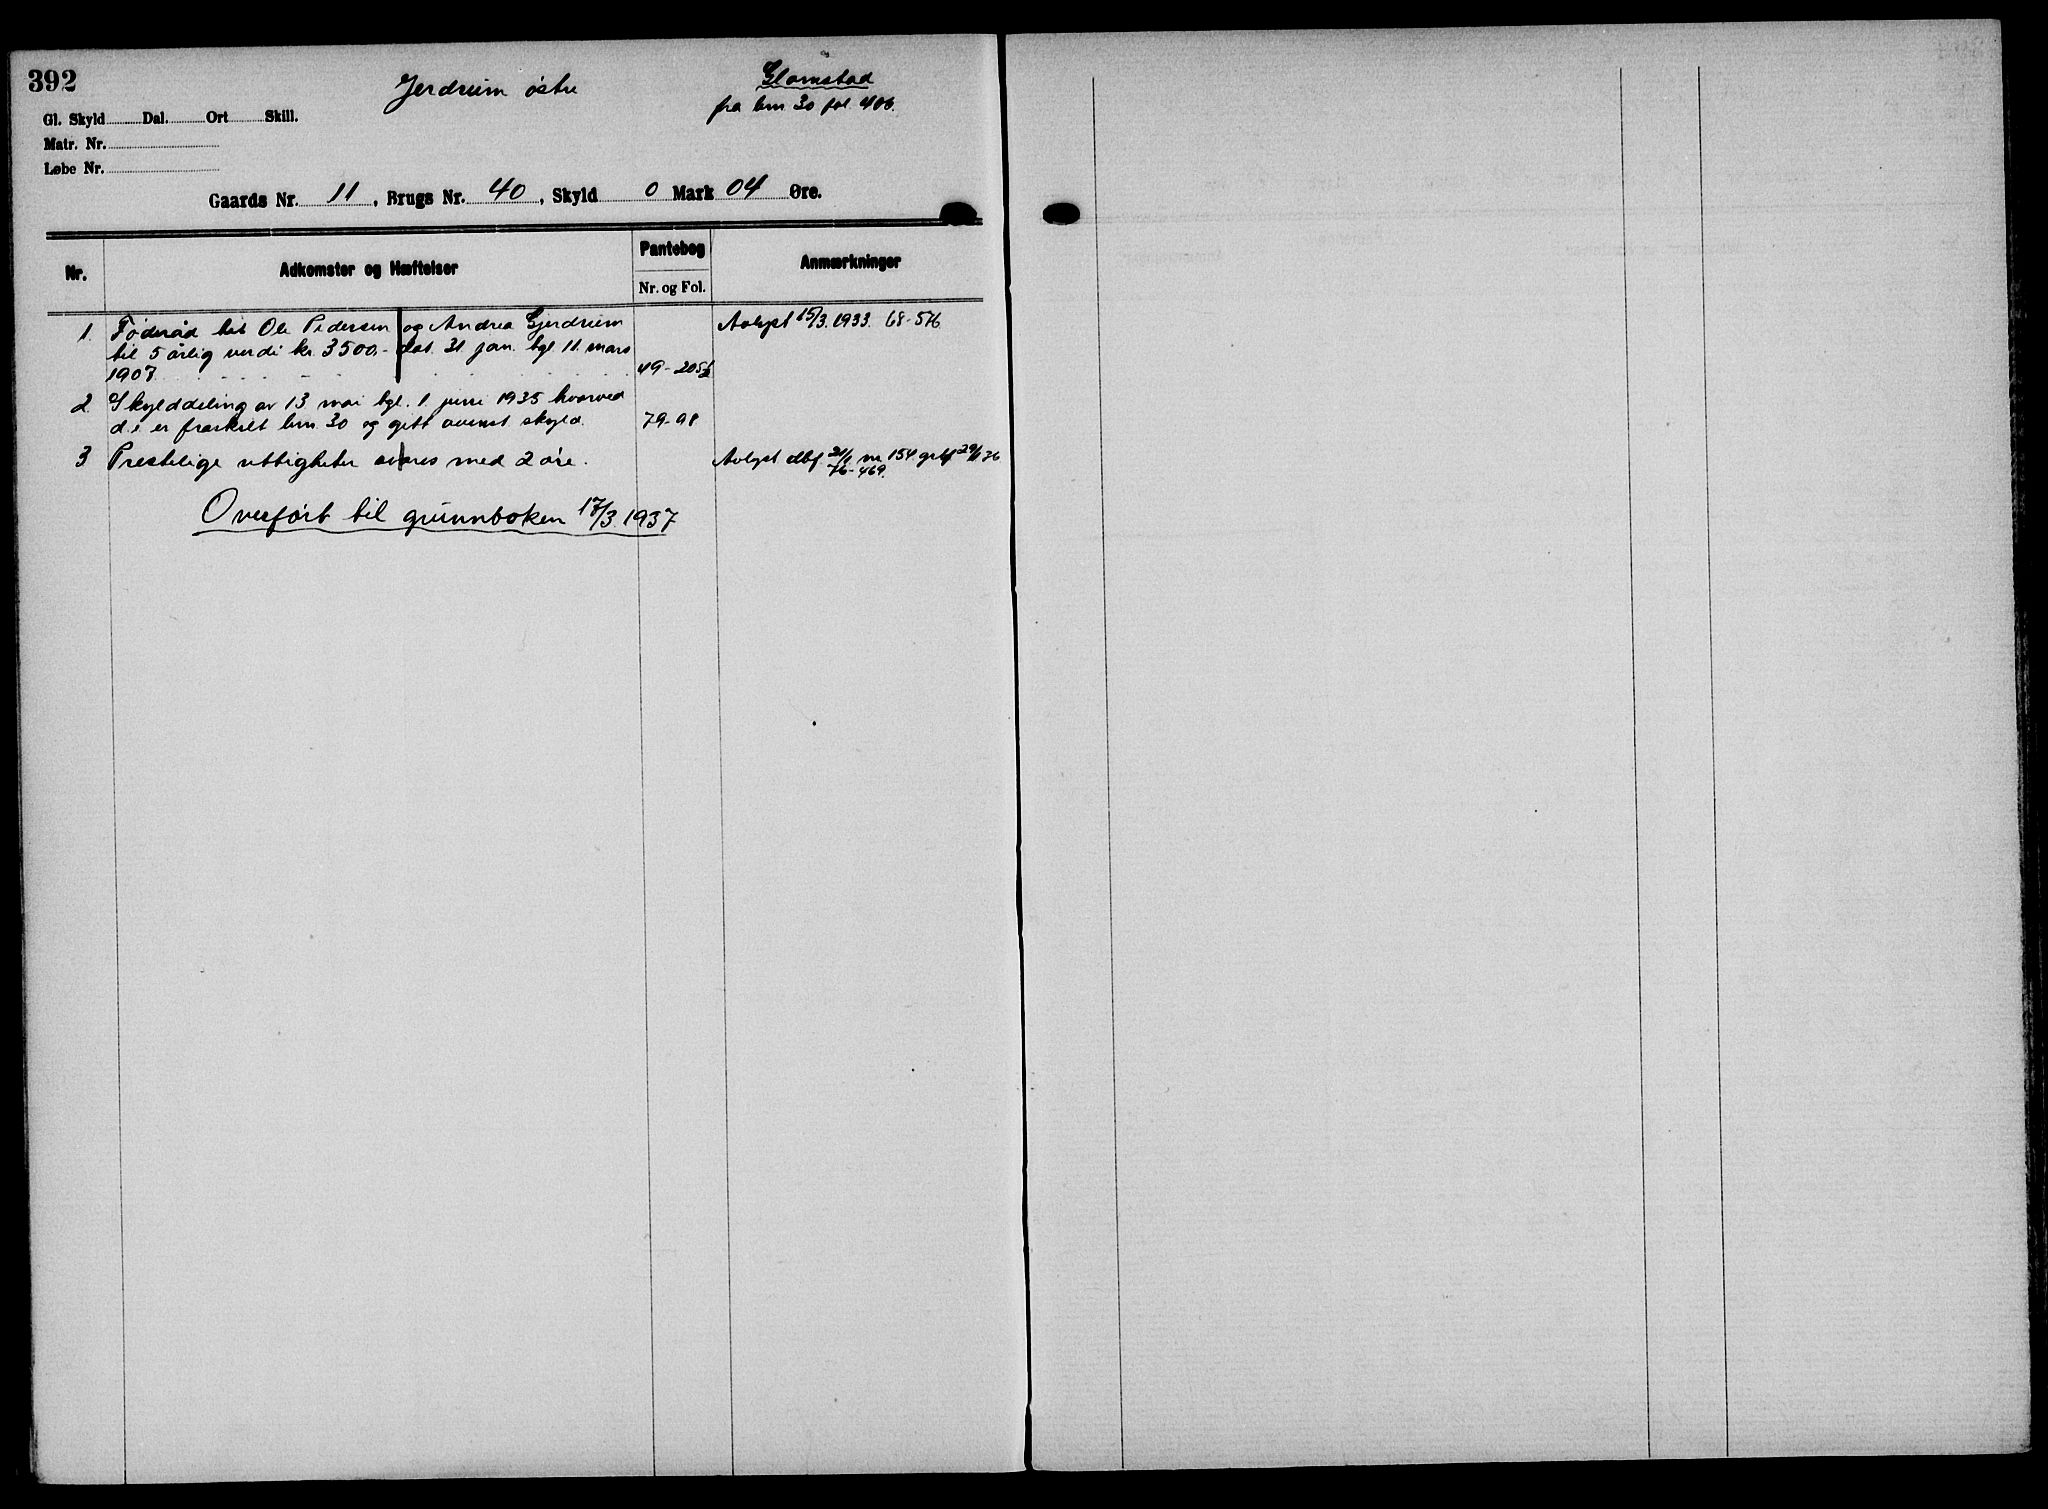 392
Jerdrum østre
Glomstad
fra brn. 30 fol. 406.
Gl. Skyld Dal. Ort Skill.
Matr. Nr.
Løbe Nr.
Gaards Nr. 11, Brugs Nr. 40, Skyld 0 Mark 04 Øre.
Nr. Adkomster og Hæftelser Pantebog Anmærkninger
Nr. og Fol.
1. Føderåd til Ole Pedersen og Andrea Gjerdrum Avlyst 15/3. 1933. 68-576
til 5 årlig verdi kr. 3500,- dat. 31 jan. tgl. 11. mars
1907. 49-205b
2 Skylddeling av 13 mai tgl. 1. juni 1935 hvorved
d.e. er fraskilt brn. 30 og gitt ovenst. skyld. 79-98
3 Prestelige rettigheter svares med 2 øre. Avlyst dbf. nr 154
76-469.
Overført til grunnboken 17/3. 1937